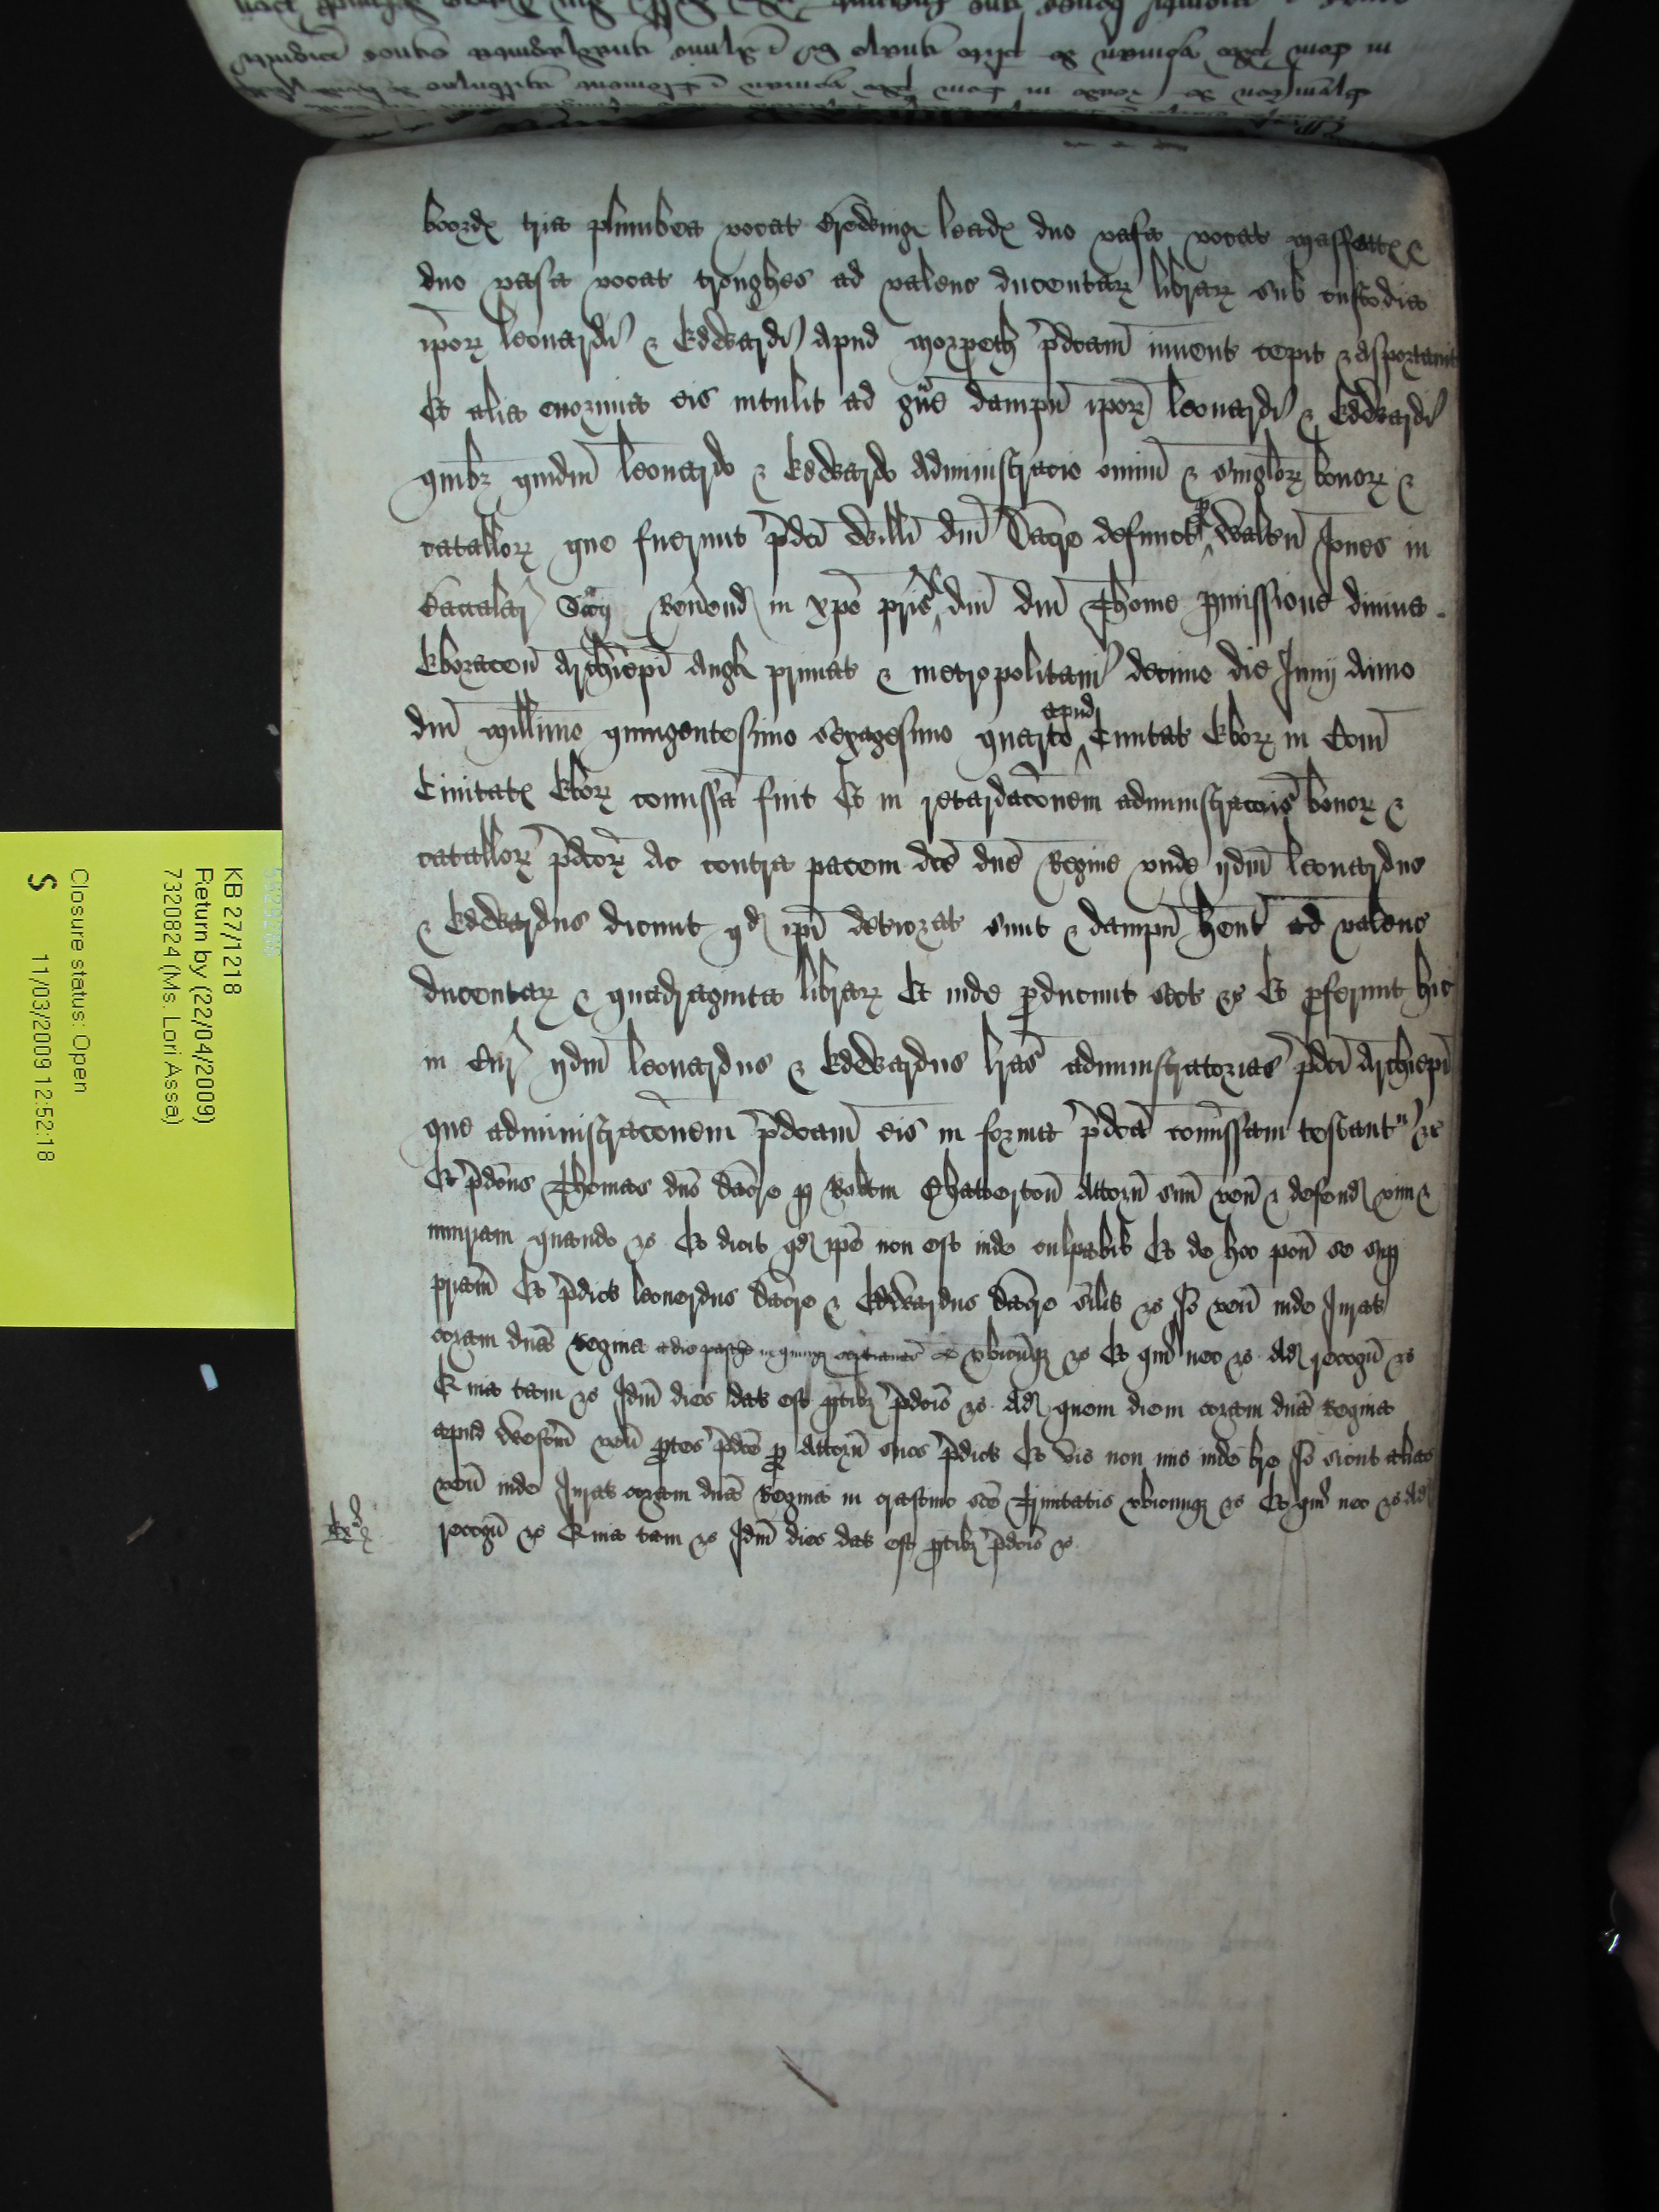 boordℯ tria plumbea vocat Brewing leadℯ duo vasa vocat massfattℯ &
duo vasa vocat troughes ad valenc ducentaꝝ libraꝝ sub custodia
ip̄oꝝ leonardi & Edwardi apud Morpeth p̄dc̄am invent cepit & asportavit
Et alia enormia eis intulit ad gͣue dampn̄ ip̄oꝝ leonardi & Edwardi
quibȝ quidm̄ leonardo & Edwardo administracio omniū & singloꝝ bonoꝝ &
catalloꝝ que fuerunt p̄dc̄i Willi dn̄i Dacre defunct ꝑ Walteꝝ Jones in
Cacalar Reverend in xp̄o pr̄is dn̄i dn̄i Thome ꝑmissione divina
Eboracen̄ Archiep̄i Angl primat & metropolitani decimo die Junij anno
dn̄i millimo quingentesimo sexagesimo quarto apud Civitat Eboꝝ in Com̄
Civitatℯ Eboꝝ comissa fuit Et in retardac̄onem administracōis bonoꝝ &
catalloꝝ p̄dc̄oꝝ ac contra pacem dc̄e dn̄e Regine unde ijdm̄ leonardus
& Edwardus dicunt qd̄ ip̄i deteriorat sunt & dampn̄ hent ad valenc
ducentaꝝ & quadraginta libraꝝ Et inde ꝓducunt sect &c Et ꝓferunt hic
in Cur ijdm̄ leonardus & Edwardus lr̄as administratorias p̄dc̄i Archiep̄i
que administrac̄onem p̄dc̄am eis in forma p̄dc̄a comissam testantʳ &c
Et p̄dc̄us Thomas dn̄s dacre ꝑ Robtm Chatterton̄ Attorn̄ suū ven̄ & defend vim &
iniuriam quando &c Et dicit qd̄ ip̄e non est inde culpabil Et de hoc pon̄ se suꝑ
pr̄iam Et p̄dict leonerdus dacre & Edwardus dacre silit &c Io ven̄ inde Jurat
coram dn̄a Regina a die pasche in quinqȝ septimanas ubicūqȝ &c Et qui nec &c Ad recogn̄ &c
Quia tam &c Idm̄ dies dat est ꝑtibȝ p̄dc̄is &c Ad quem diem coram dn̄a Regina
apud Westm̄ ven̄ ꝑtes p̄dc̄e ꝑ Attorn̄ suos p̄dict Et vic non mis inde br̄e Io sicut alias
ven̄ inde Jurat coram dn̄a Regina in crastino sc̄e Trinitatis ubicunqȝ &c Et qui nec &c Ad
recogn̄ &c Quia tam &c Idm̄ dies dat est ꝑtibȝ p̄dc̄is &c
KB 27/1218
Return by (22/04/2009)
7320824 (Ms. Lori Assa)
Closure status: Open
S 11/03/2009 12:52:18